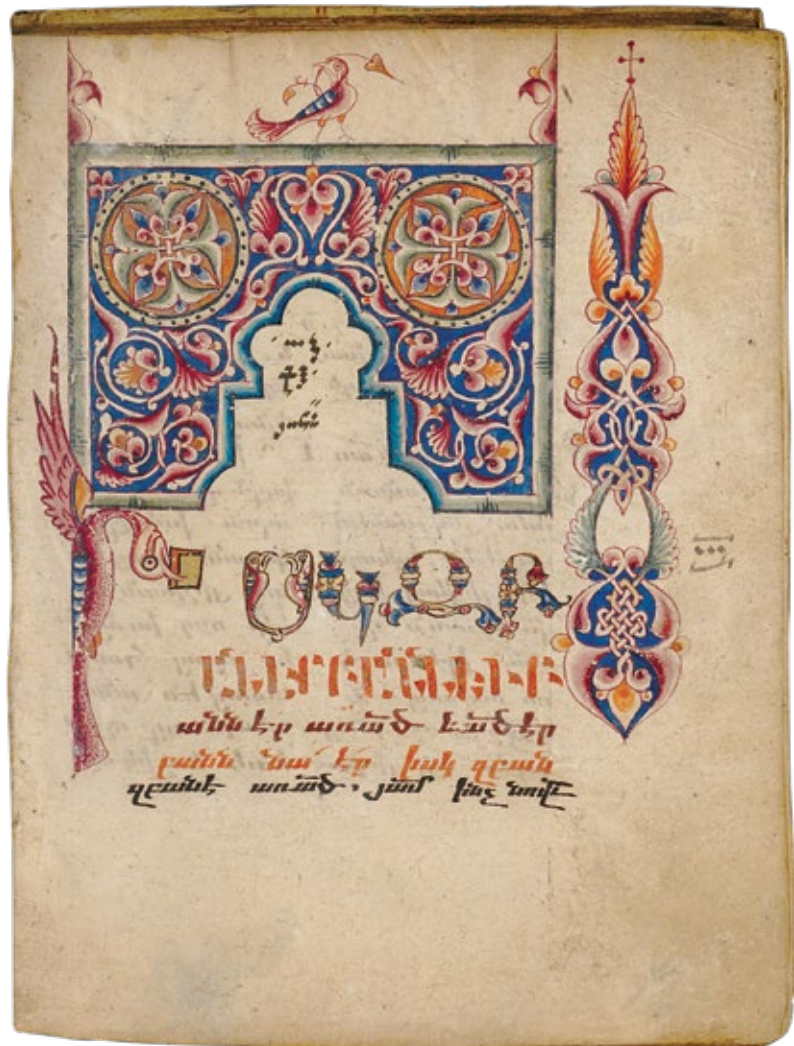 Ի ՍԿԶԲ
ԱՆԷԷՐԲԱՆՆԵՒԲ
անն էր առ ած և ած էր
բանն նա էր իսկ զբան
զբանէ առ ած. յամ ինչ նովաւ